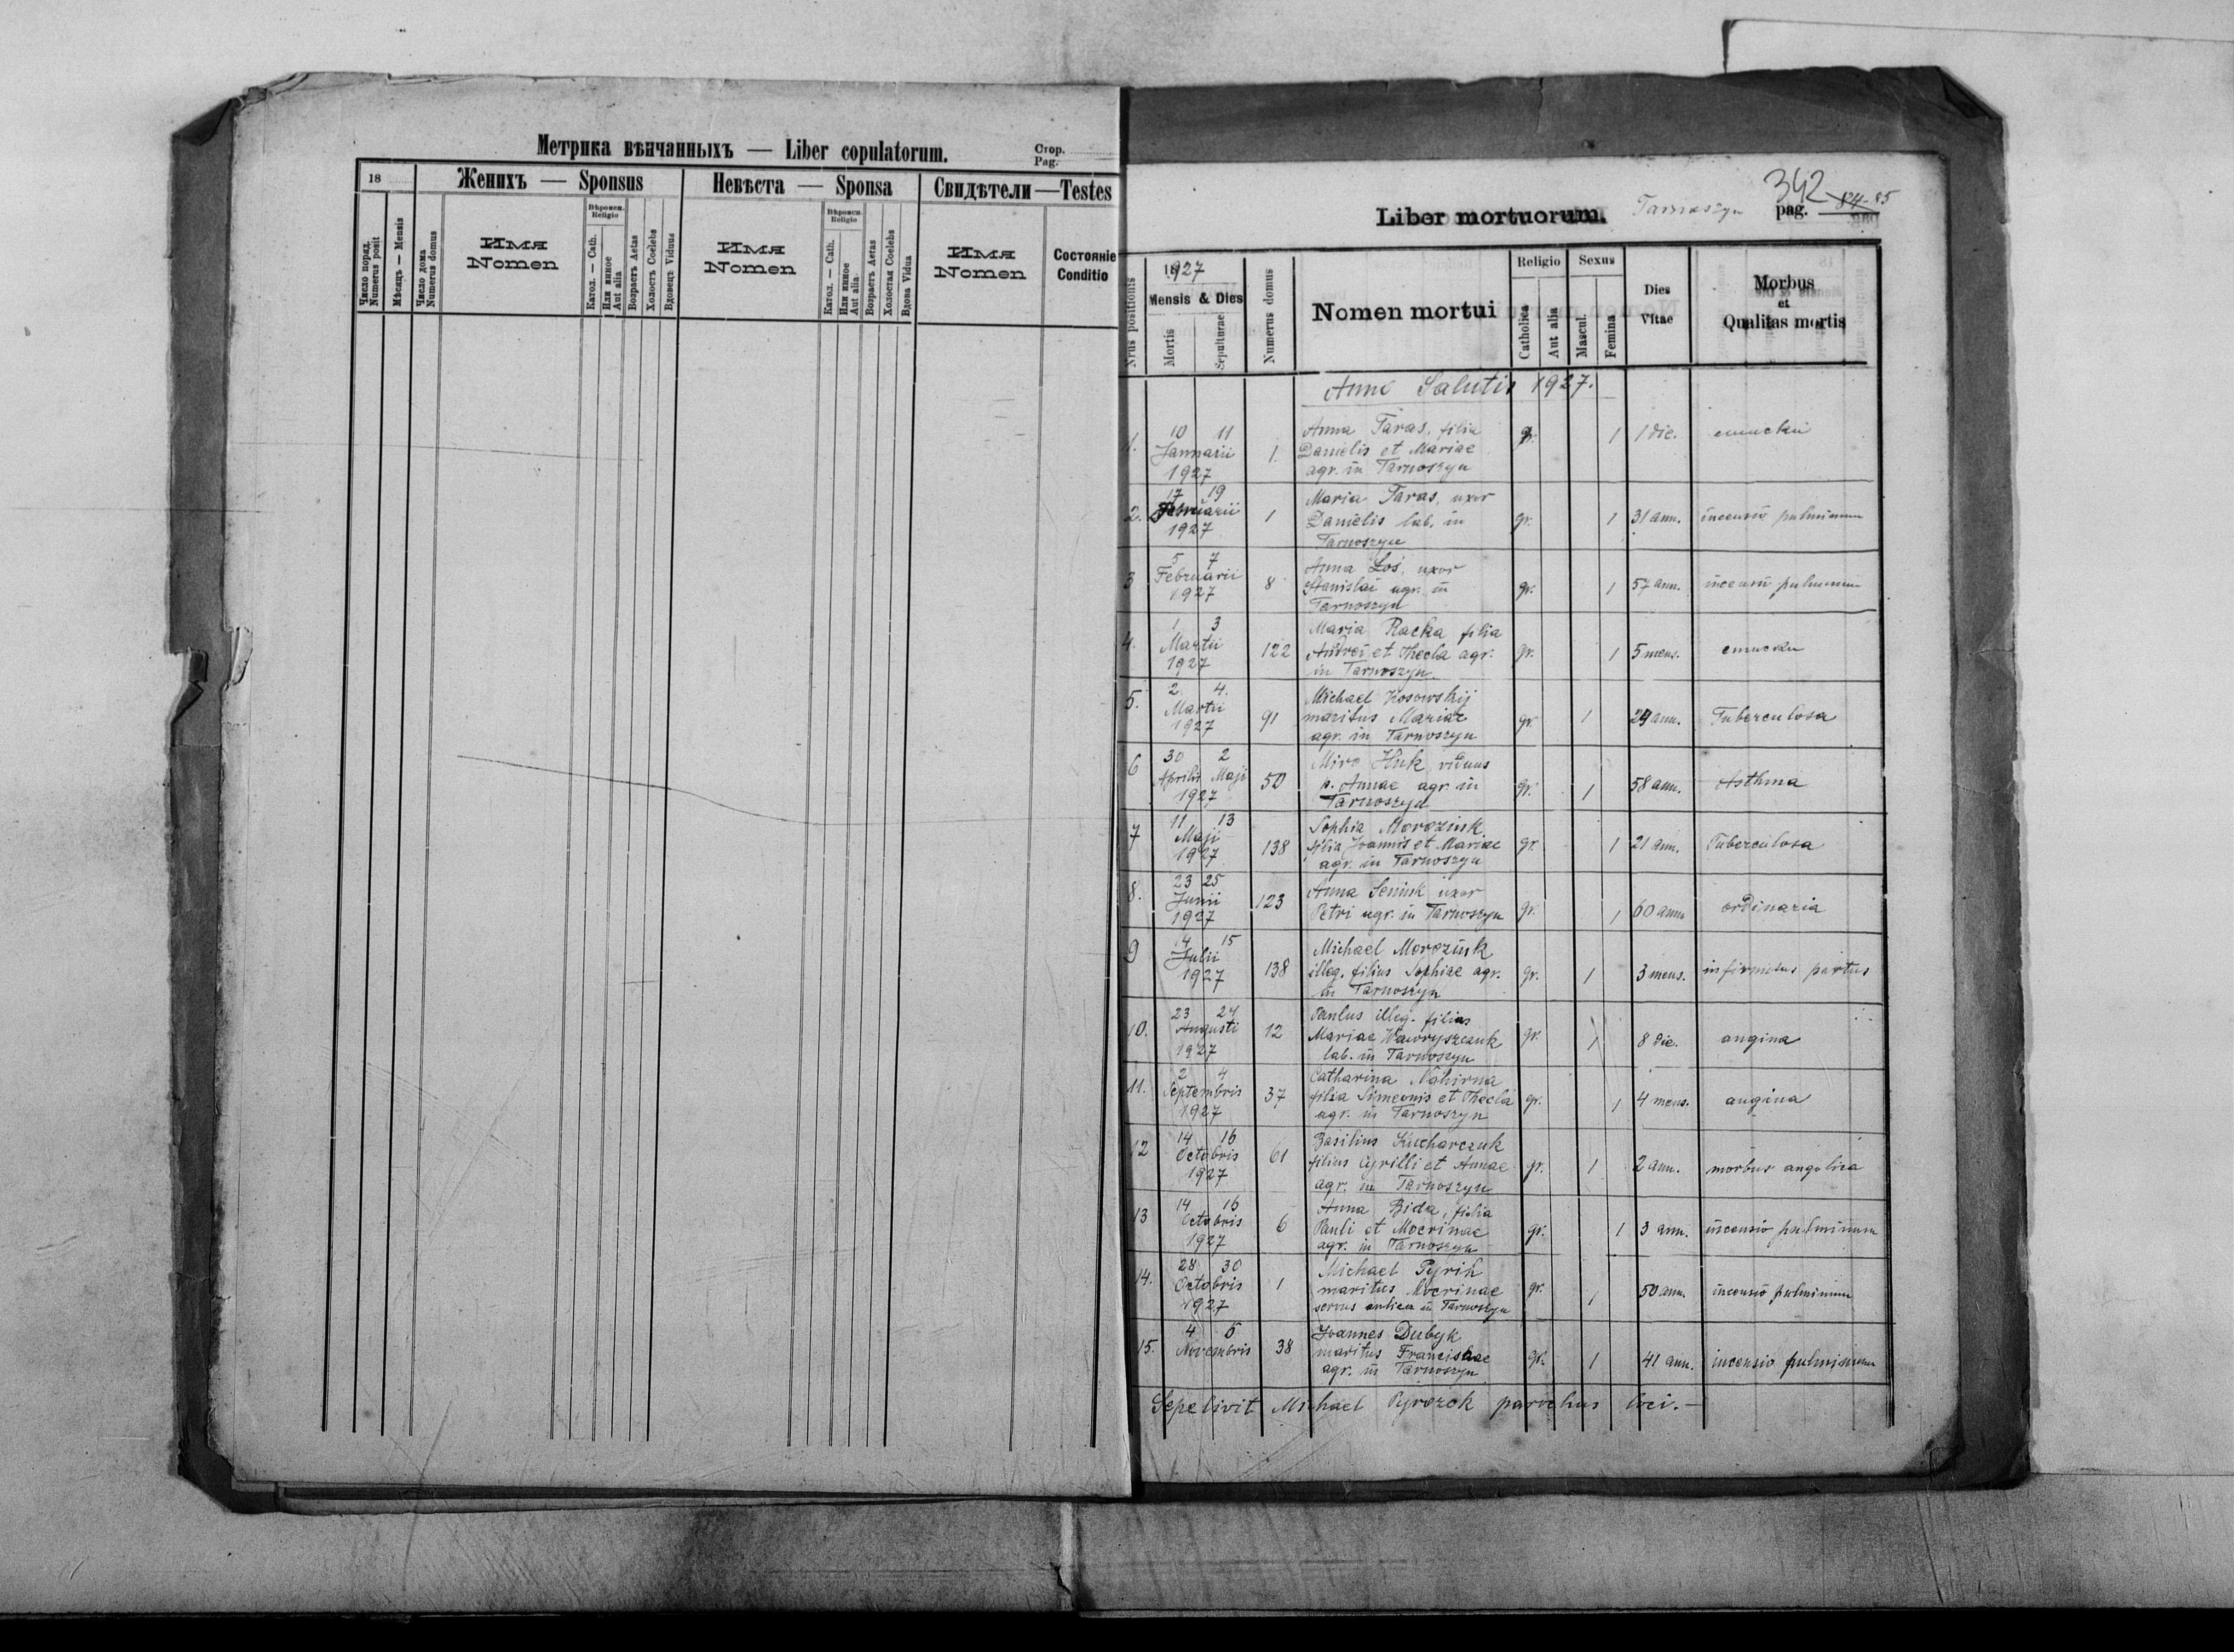 Метрика вѣнчанныхъ — Liber copulatorum.
Стор.
Pag.
18
Женихъ — Sponsus
Невѣста — Sponsa
Свидѣтели — Testes
Число поряд.
Numerus posit
Мѣсяцъ — Mensis
Число дома
Numerus domus
Имя
Nomen
Вѣроисп.
Religio
Катол. — Cath.
Или инное
Aut alia
Возрастъ Aetas
Холостъ Coelebs
Вдовецъ Viduus
Имя
Nomen
Вѣроисп.
Religio
Катол. — Cath.
Или инное
Aut alia
Возрастъ Aetas
Холостая Coelebs
Вдова Vidua
Имя
Nomen
Состояніе
Conditio
Liber mortuorum.
Tarnoszyn
342
pag. 84-85
Nrus positionis
1927
Mensis & Dies
Mortis
Sepulturae
Numerus domus
Nomen mortui
Religio
Catholica
Aut alia
Sexus
Mascul.
Femina
Dies
Vitae
Morbus
et
Qualitas mortis
Anno Salutis 1927.
1. 10 11 Januarii 1927 1. Anna Taras, filia
Danielis et Mariae
agr. in Tarnoszyn
gr. 1 1 die.
2. 17 19 Februarii 1927 1 Maria Taras, uxor
Danielis lab. in
Tarnoszyn
gr. 1 31 ann. incensio pulminum
3 5 7 Februarii 1927 8 Anna Łoś, uxor
Stanislai agr. in
Tarnoszyn
gr. 1 57 ann. incensio pulminum
4. 1 3 Martii 1927 122 Maria Racka filia
Andrei et Thecla agr.
in Tarnoszyn
gr. 1 5 mens.
5. 2. 4. Martii 1927 91 Michael Kosowskij
maritus Mariae
agr. in Tarnoszyn
gr. 1 29 ann. Tuberculosa
6 30 2 Aprilis Maji 1927 50 Miro Huk, viduus
p. Annae agr. in
Tarnoszyn
gr. 1 58 ann. Asthma
7 11 13 Maji 1927 138 Sophia Moroziuk
filia Joannis et Mariae
agr. in Tarnoszyn
gr. 1 21 ann. Tuberculosa
8. 23 25 Junii 1927 123 Anna Seniuk uxor
Petri agr. in Tarnoszyn
gr. 1 60 ann. ordinaria
9 14 15 Julii 1927 138 Michael Moroziuk
illeg. filius Sophiae agr.
in Tarnoszyn
gr. 1 3 mens. infirmitas partus
10. 23 24 Augusti 1927 12 Paulus illeg. filius
Mariae Wawryszczuk
lab. in Tarnoszyn
gr. 1 8 die. angina
11. 2 4 Septembris 1927 37 Catharina Nahirna
filia Simeonis et Thecla
agr. in Tarnoszyn
gr. 1 4 mens. angina
12 14 16 Octobris 1927 61 Basilius Kucharczuk
filius Cyrilli et Annae
agr. in Tarnoszyn
gr. 1 2 ann. morbus angolica
13 14 16 Octobris 1927 6 Anna Bida, filia
Pauli et Mocrinae
agr. in Tarnoszyn
gr. 1 3 ann. incensio pulminum
14. 28 30 Octobris 1927 1 Michael Pyrih
maritus Mocrinae
servus in Tarnoszyn
gr. 1 50 ann. incensio pulminum
15. 4 6 Novembris 38 Joannes Dubyk
maritus Franciskae
agr. in Tarnoszyn
gr. 1 41 ann. incensio pulminum
Sepelivit Michael Pyrozok parochus loci.—